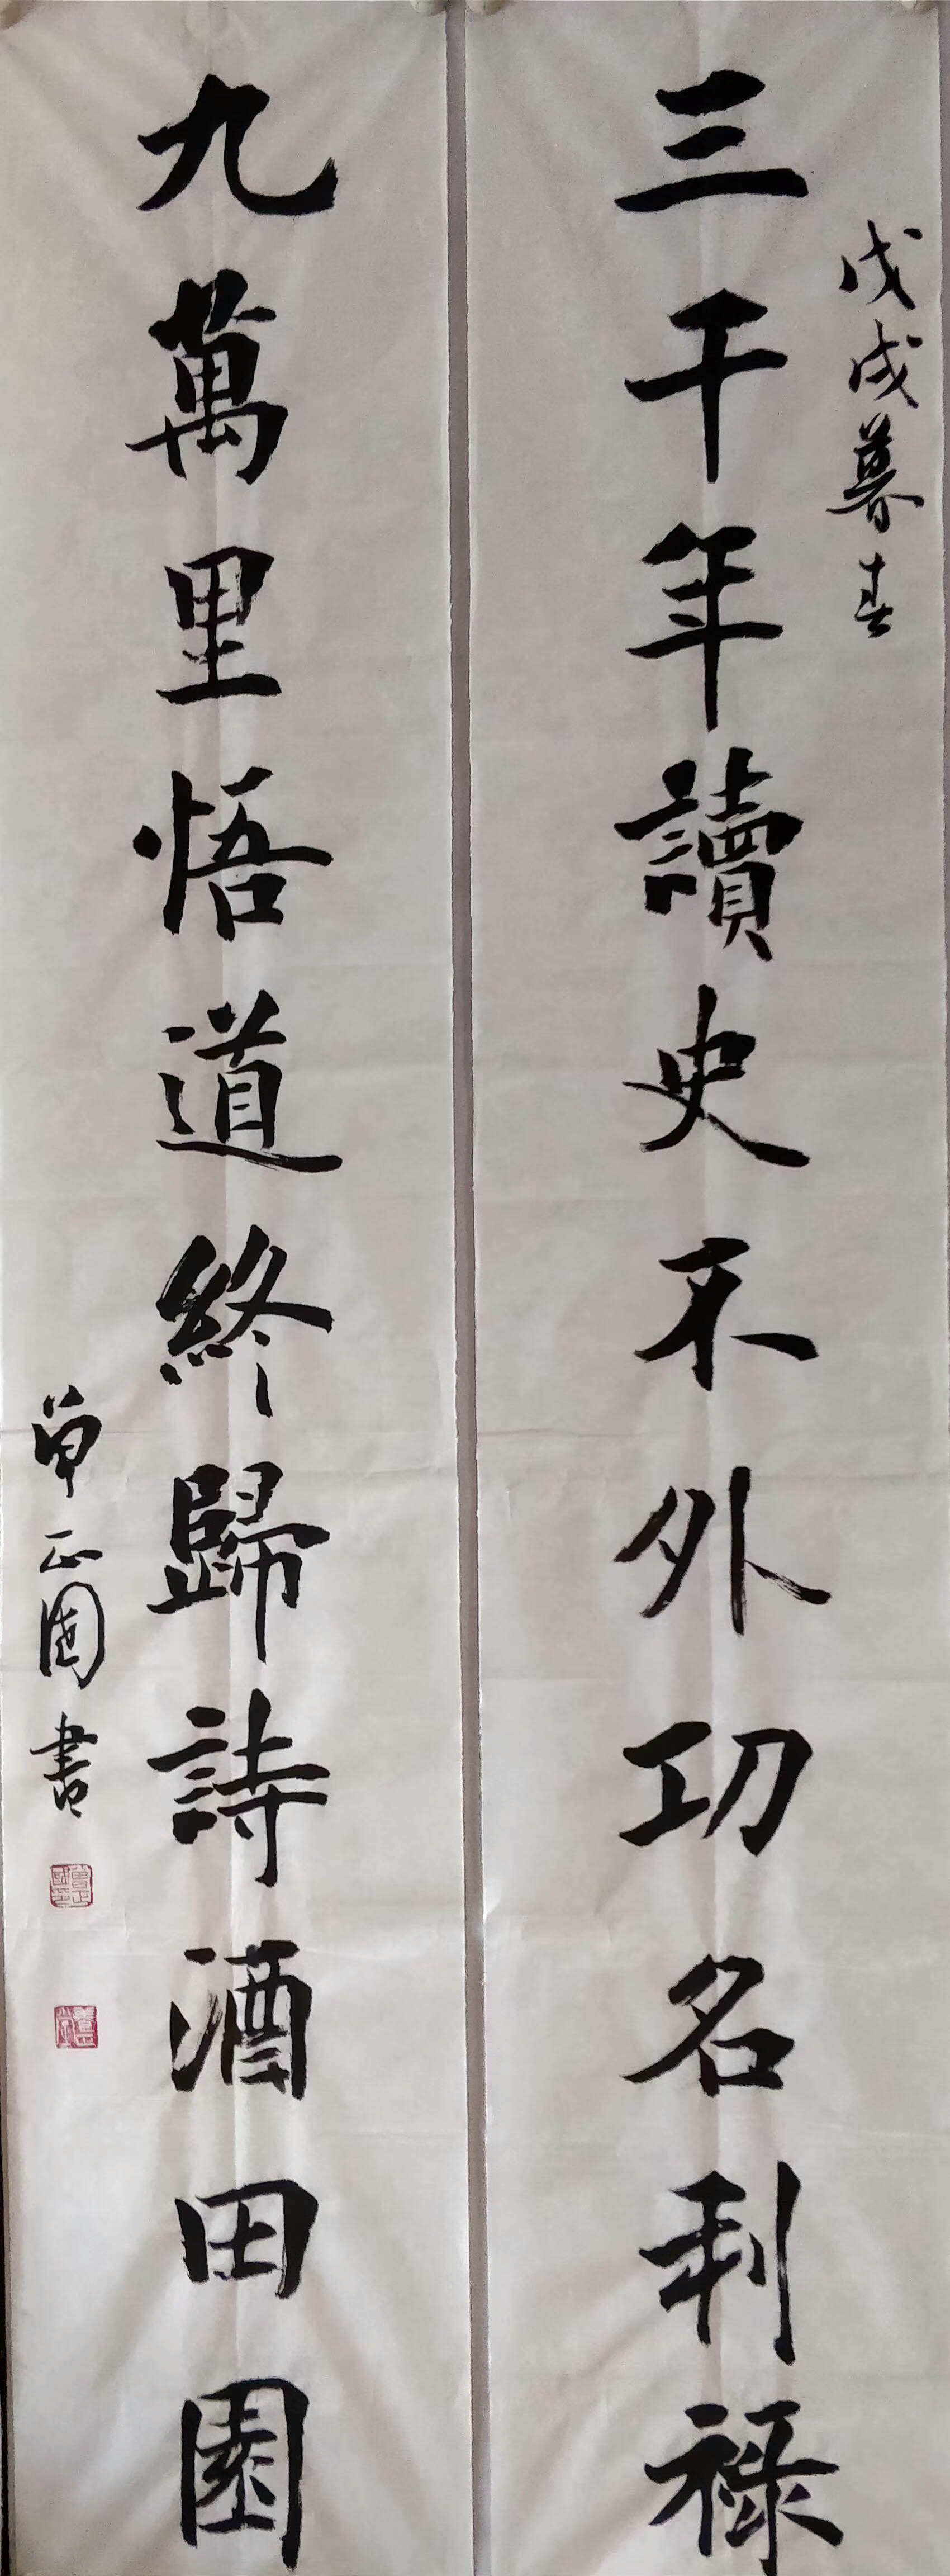 戊戌暮春
三千年讀史不外功名利祿
九萬里悟道終歸詩酒田園
曾正國書